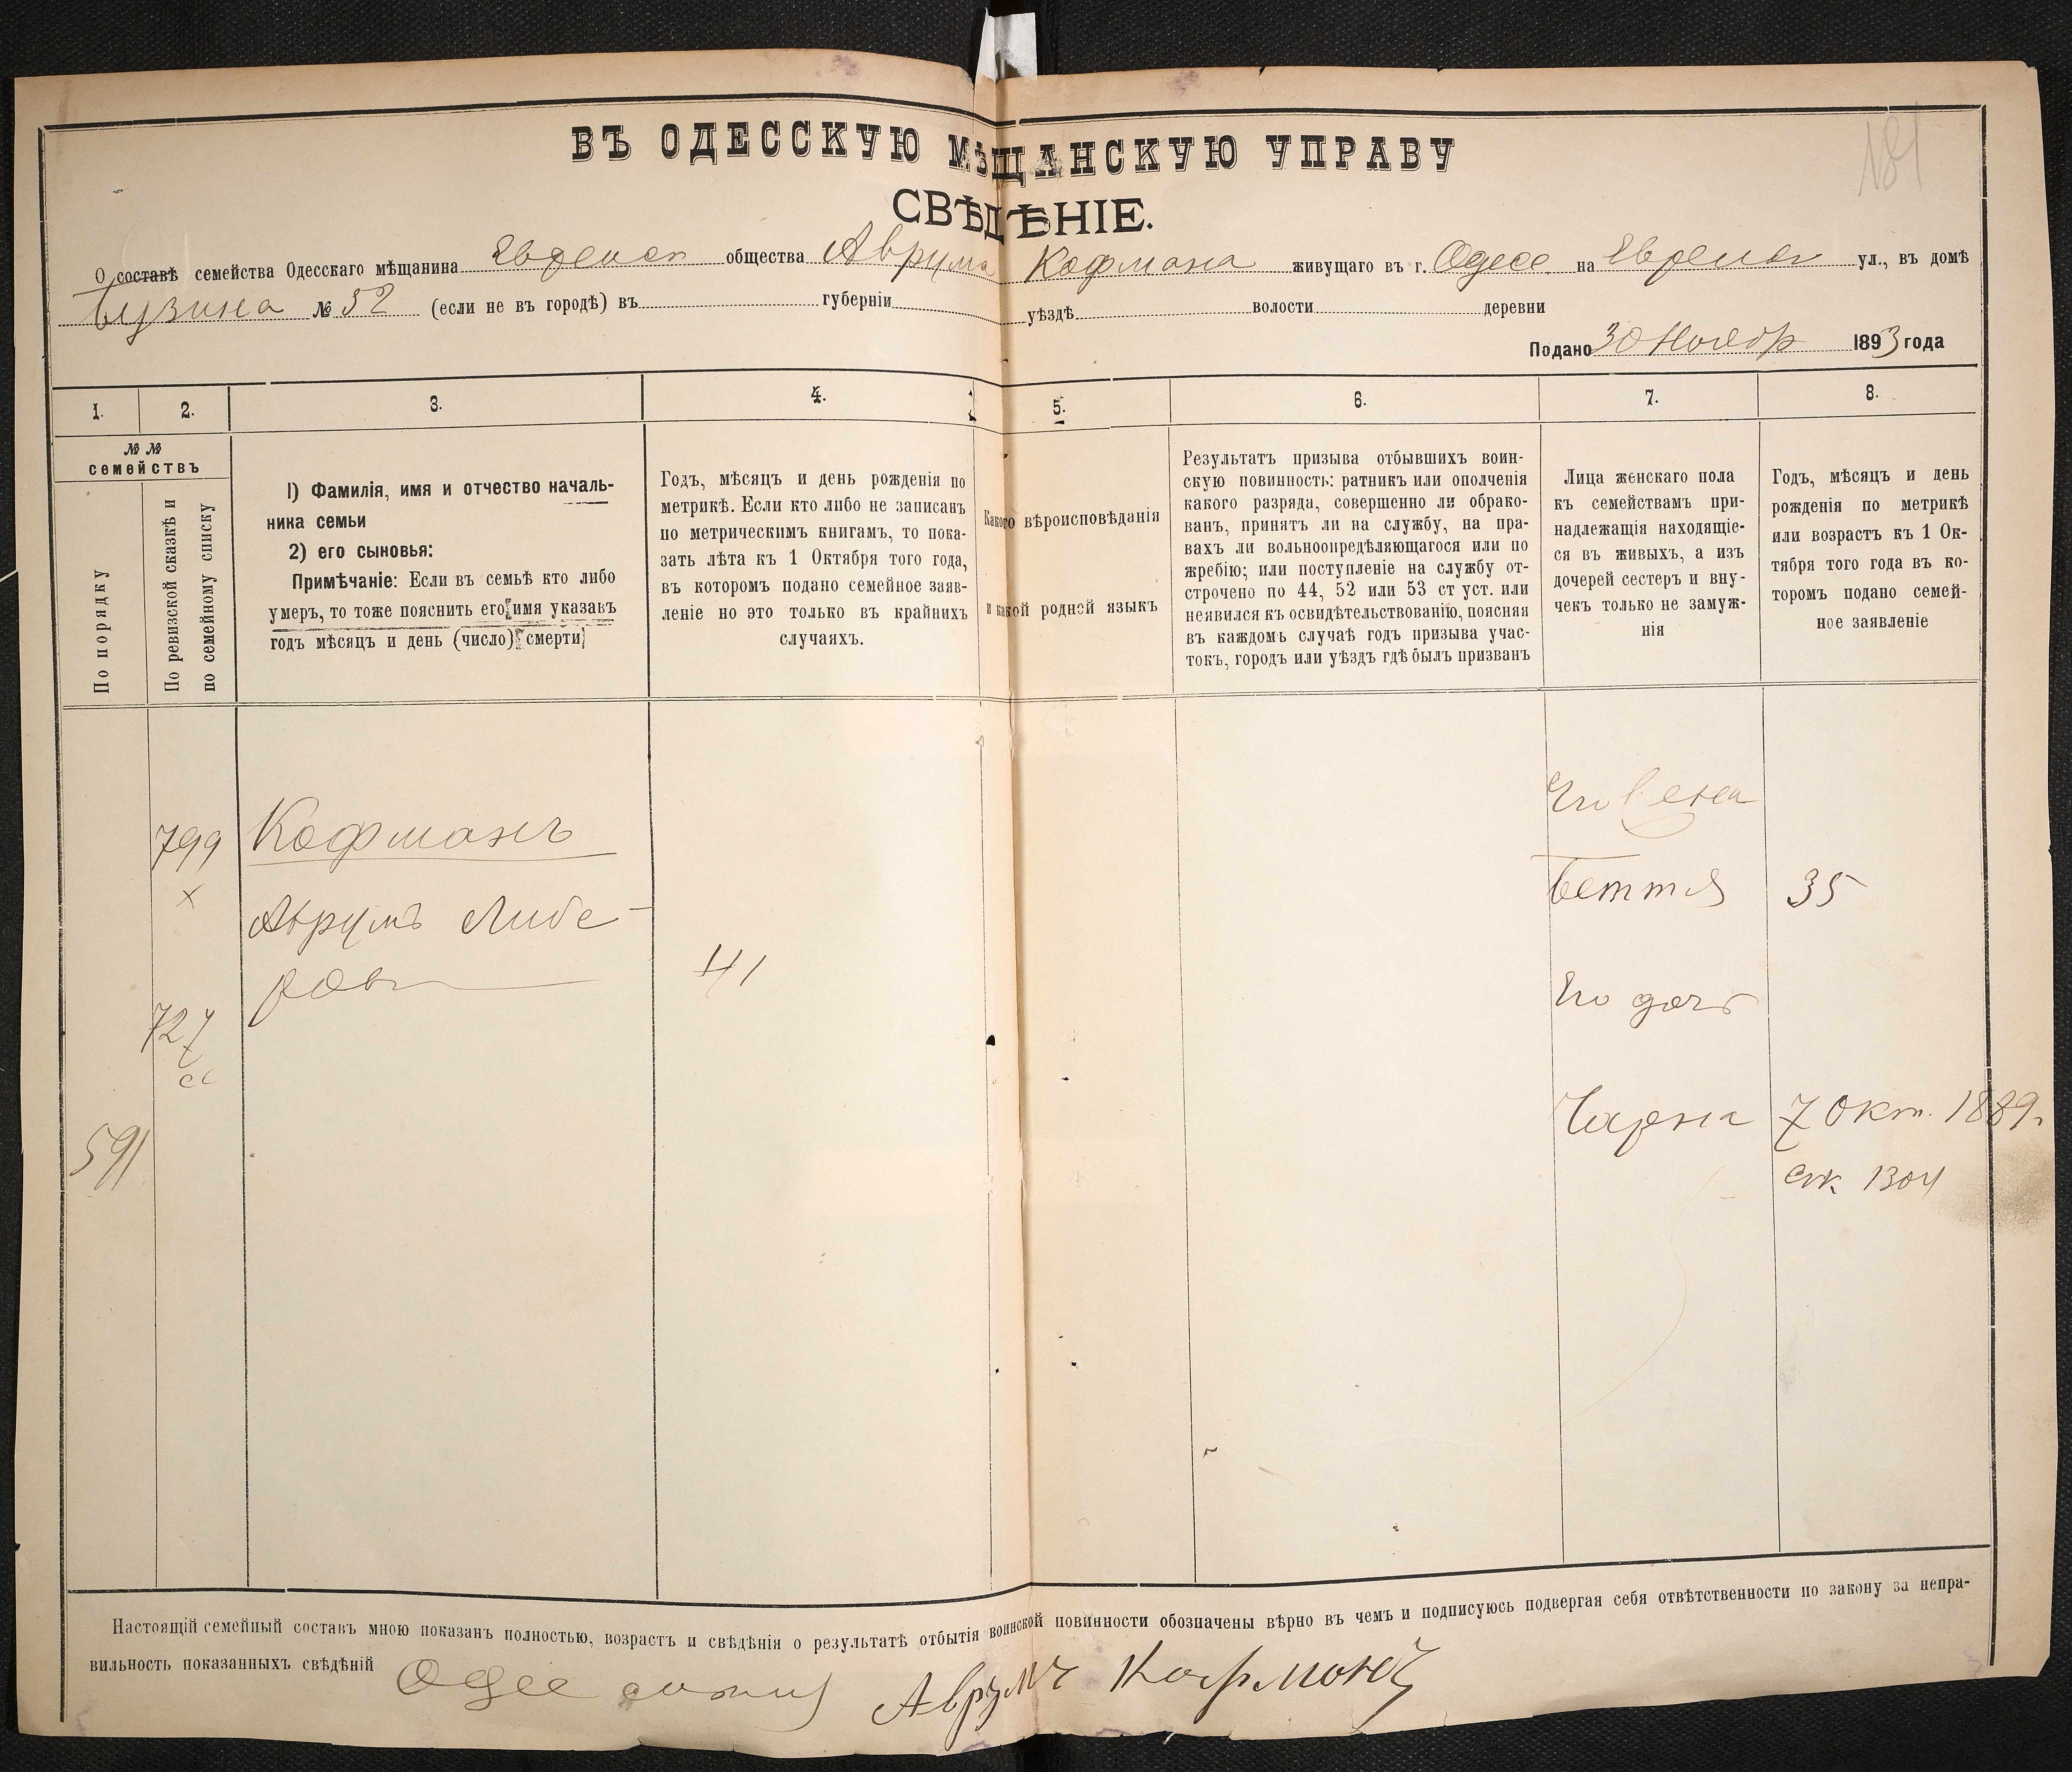 ВЪ ОДЕССКУЮ МѢЩАНСКУЮ УПРАВУ
СВѢДѢНІЕ.
О составѣ семейства Одесскаго мѣщанина Еврейск общества Аврума Кофмана живущаго въ г. Одесс на Еврейск ул., въ домѣ
Бузина № 52 (если не въ городѣ) въ губерніи уѣздѣ волости деревни
Подано 30 Ноябр 1893 года
1. 2. 3. 4. 5. 6. 7. 8.
№ №
семействъ
По порядку
По ревизской сказкѣ и
по семейному списку
1) Фамилія, имя и отчество началь-
ника семьи
2) его сыновья:
Примѣчаніе: Если въ семьѣ кто либо
умеръ, то тоже пояснить его имя указавъ
годъ мѣсяцъ и день (число) смерти
Годъ, мѣсяцъ и день рожденія по
метрикѣ. Если кто либо не записанъ
по метрическимъ книгамъ, то пока-
зать лѣта къ 1 Октября того года,
въ которомъ подано семейное заяв-
леніе но это только въ крайнихъ
случаяхъ.
Какого вѣроисповѣданія
и какой родной языкъ
Результатъ призыва отбывшихъ воин-
скую повинность: ратникъ или ополченія
какого разряда, совершенно ли обрако-
ванъ, принятъ ли на службу, на пра-
вахъ ли вольноопредѣляющагося или по
жребію; или поступленіе на службу от-
строчено по 44, 52 или 53 ст уст. или
неявился къ освидѣтельствованію, поясняя
въ каждомъ случаѣ годъ призыва учас-
токъ, городъ или уѣздъ гдѣ былъ призванъ
Лица женскаго пола
къ семействамъ при-
надлежащія находящіе-
ся въ живыхъ, а изъ
дочерей сестеръ и вну-
чекъ только не замуж-
нія
Годъ, мѣсяцъ и день
рожденія по метрикѣ
или возрастъ къ 1 Ок-
тября того года въ ко-
торомъ подано семей-
ное заявленіе
Его жена
799 Кофманъ
Беття 35
Аврумъ Либе-
ров
41
Его дочь
727
Чарна 7 Окт. 1889г.
591
ст. 1304
Настоящій семейный составъ мною показанъ полностью, возрастъ и свѣдѣнія о результатѣ отбытія воинской повинности обозначены вѣрно въ чемъ и подписуюсь подвергая себя отвѣтственности по закону за непра-
вильность показанныхъ свѣдѣній Аврумъ Кофмонъ